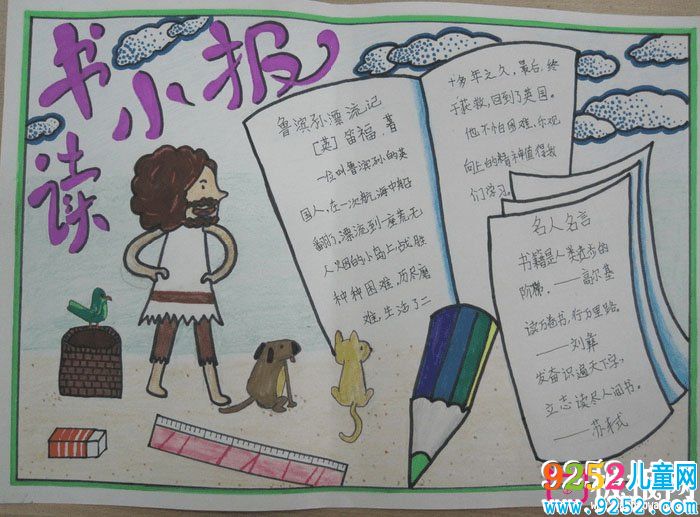 读书小报
鲁滨孙漂流记
[英]笛福 著
一位叫鲁滨孙的英
国人,在一次航海中船
翻了,漂流到一座荒无
人烟的小岛上,战胜
种种困难,历尽磨
难,生活了二
十多年之久,最后,终
于获救,回到了英国。
他不怕困难,乐观
向上的精神值得我
们学习。
名人名言
书籍是人类进步的
阶梯。——高尔基
读万卷书,行万里路。
——刘彝
发奋识遍天下字,
立志读尽人间书。
——苏轼
9252儿童网
www.9252.com